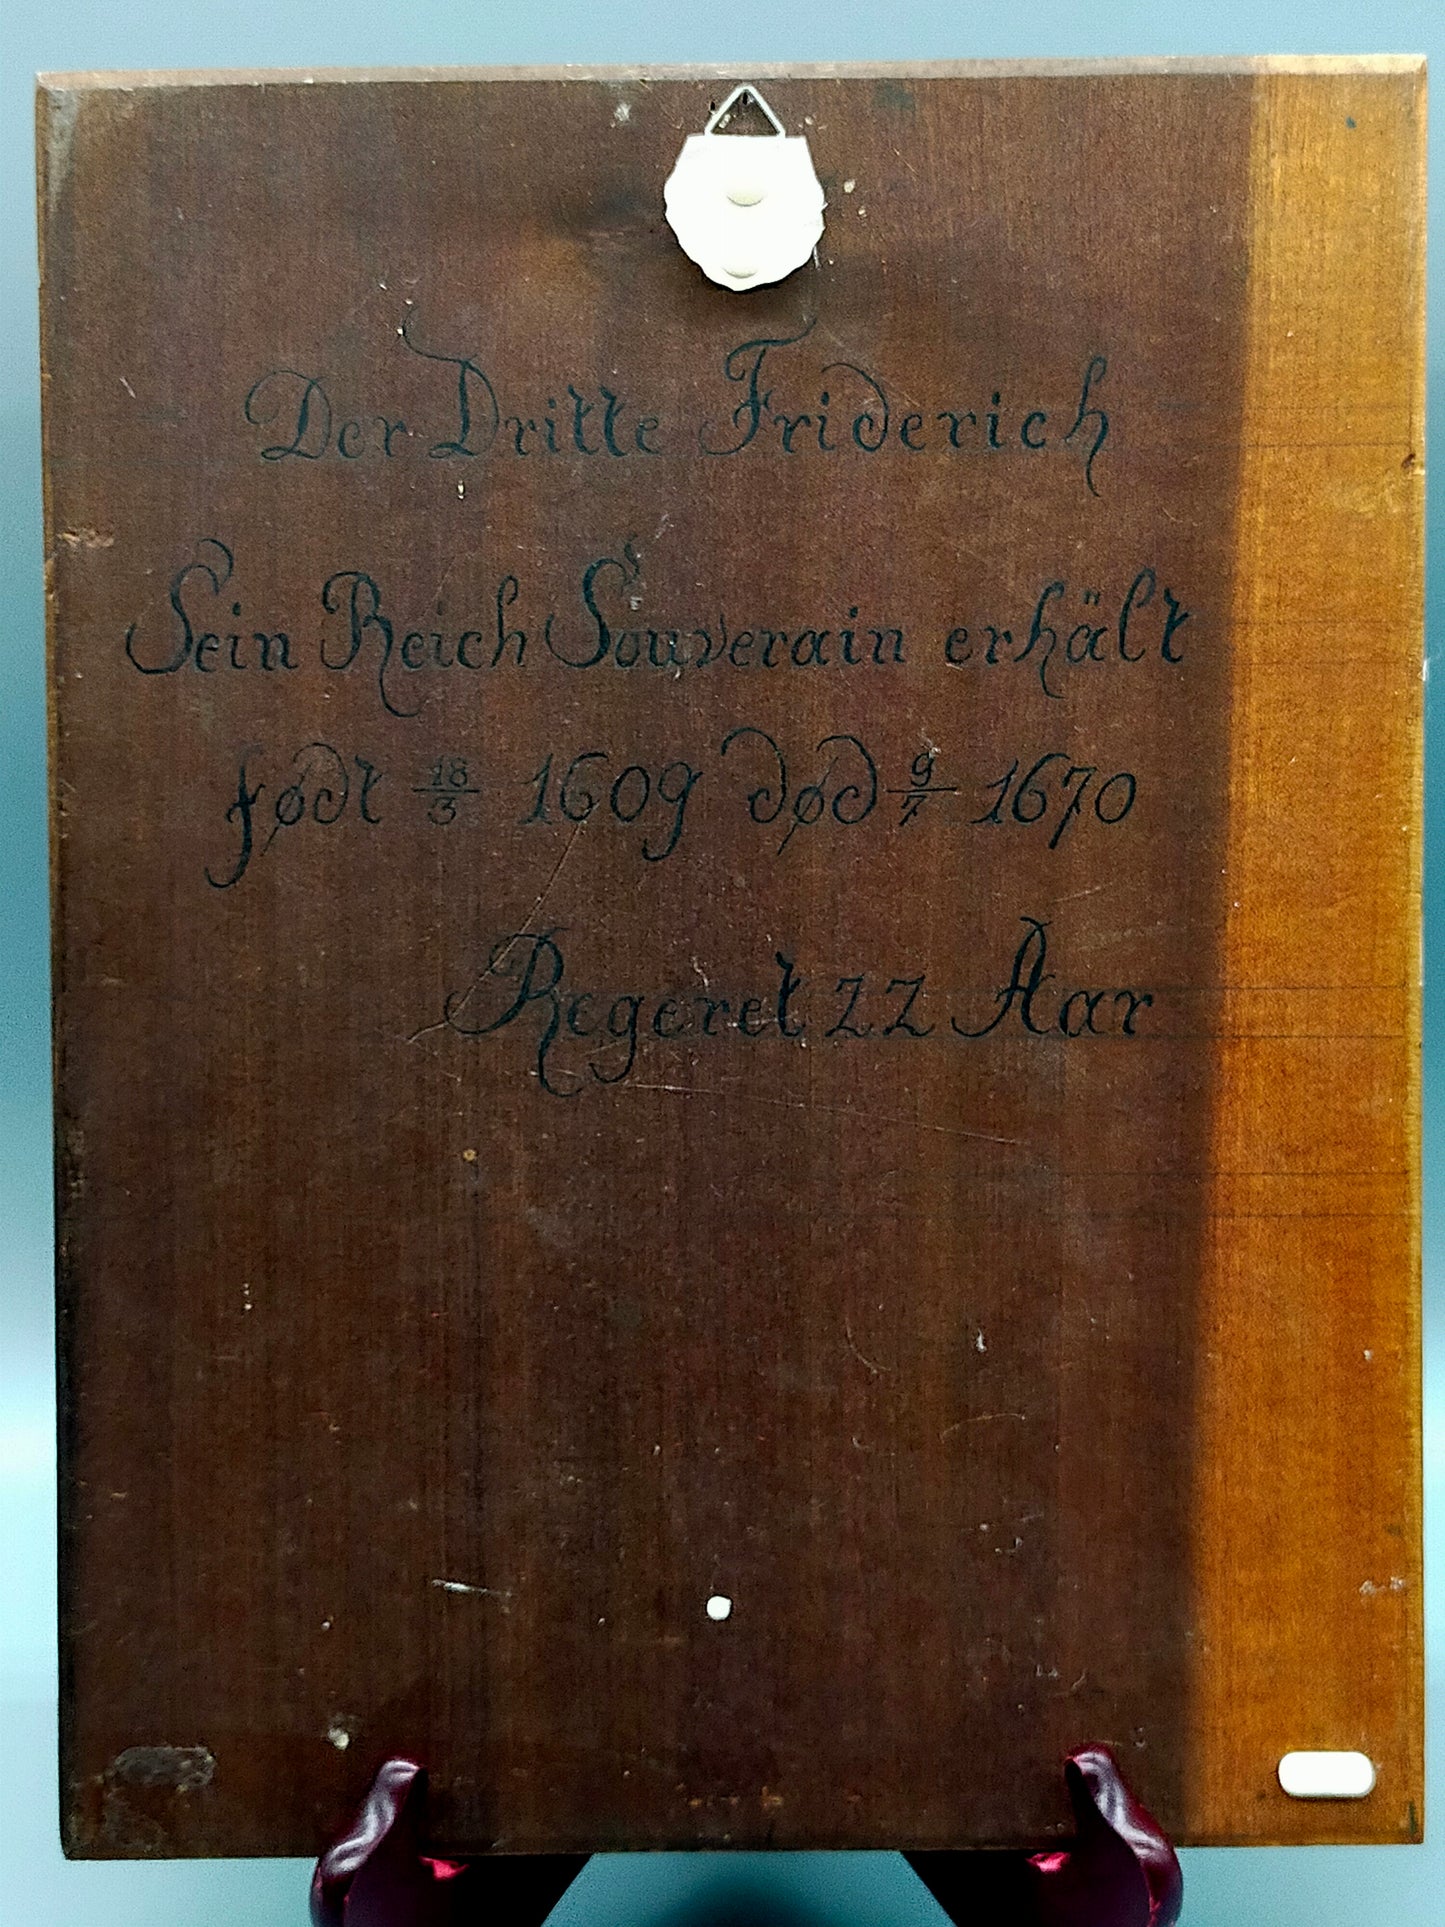 Der Dritte Friderich
Sein Reich Souverain erhält
født 18/3 1609 død 9/7 1670
Regeret 22 Aar